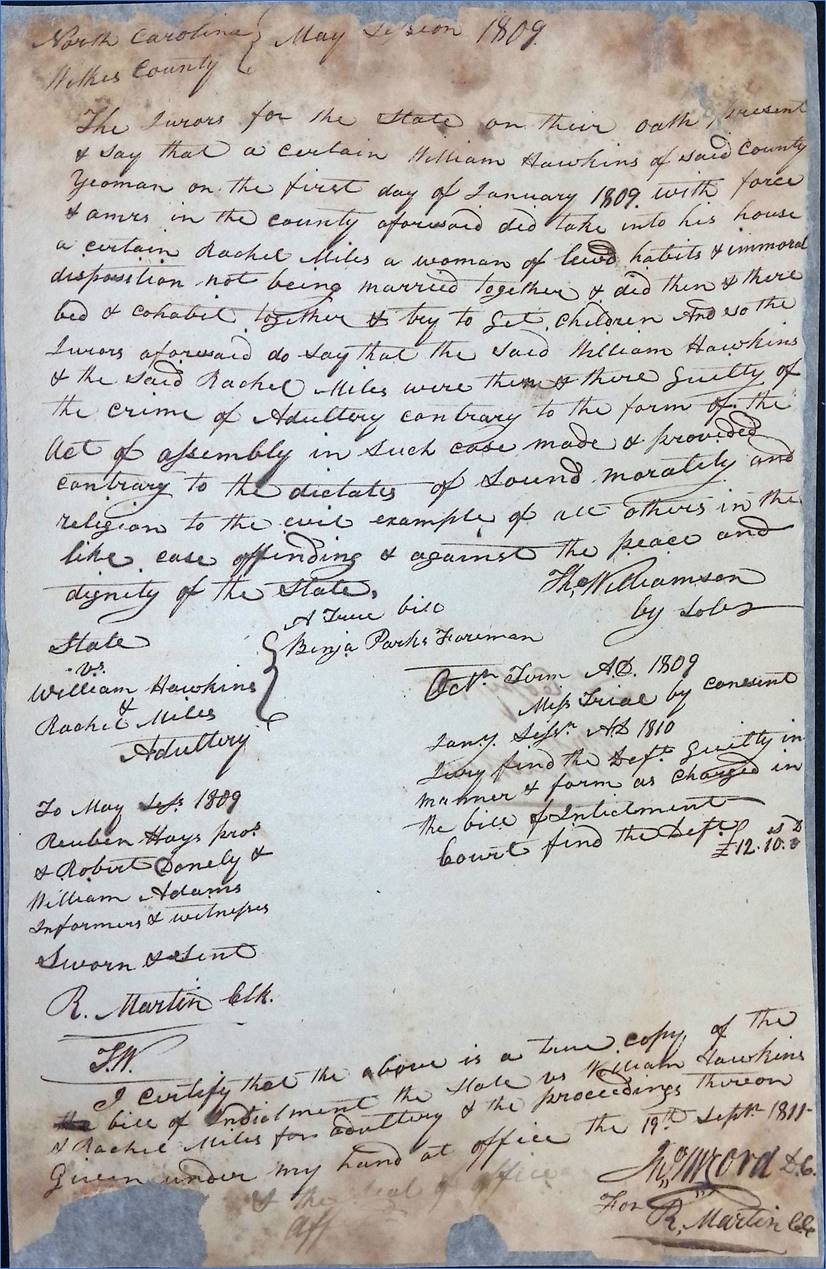 North Carolina } May Session 1809.
Wilkes County
The Jurors for the State on their oath, present
& Say that a certain William Hawkins of said County
Yeoman on the first day of January 1809. with force
& amrs in the county aforesaid did take into his house
a certain Rachel Miles a woman of lewd habits & immoral
disposition not being married together & did then & there
bed & cohabit together & try to get children And so the
Jurors aforesaid do say that the said William Hawkins
& the said Rachel Miles were then & there guilty of
the crime of Adultery contrary to the form of the
Act of assembly in Such case made & provided
contrary to the dictates of Sound morality and
religion to the evil example of all others in the
like case offending & against the peace and
dignity of the State.
Tho. Williamson
by Solr
A True bill
Benja Parks Foreman
State
vs.
William Hawkins
&
Rachel Miles
Adultery
Octr. Term AD. 1809
Miss Trial by consent
Jany. Sessn. AD 1810
Jury find the Defts. Guilty in
manner & form as charged in
the bill of Indictment
Court find the Deft
£12.10.0
To May Sess. 1809
Reuben Hays pros.
& Robert Donely &
William Adams
Informers & witnesses
Sworn & Sent
R. Martin Clk.
T.W.
I certify that the above is a true copy of the
bill of Indictment the State vs William Hawkins
& Rachel Miles for adultery & the proceedings thereon
Given under my hand at office the 19th Septr 1811
& the seal of office
D.C.
For
R. Martin Clk